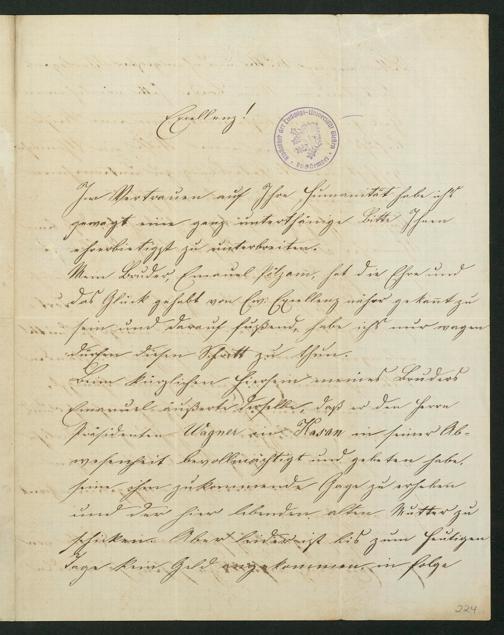 Excellenz!
Im Vertrauen auf Ihre Humanität habe ich
gewagt eine ganz unterthänige Bitte Ihnen
ehrerbietigst zu unterbreiten.
Mein Bruder, Emanuel, hat die Ehre und
das Glück gehabt von Ew. Excellenz näher gekannt zu
sein und darauf fußend, habe ich nur wagen
dürfen diesen Schritt zu thun.
Beim kürzlichen Hiersein meines Bruders
Emanuel äußerte derselbe, daß er den Herrn
Präsidenten Wagner in Kasan in seiner Ab-
wesenheit bevollmächtigt und gebeten habe,
seine ihm zukommende Gage zu erheben
und der hier lebenden alten Mutter zu
schicken. Aber leider ist bis zum heutigen
Tage kein Geld angekommen in Folge
224